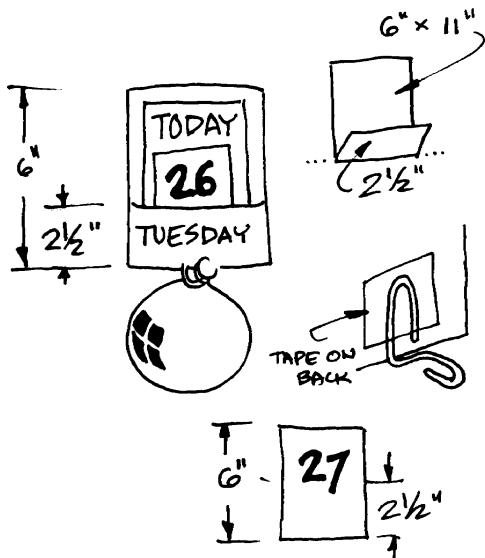 6" × 11"
TODAY
26
6"
2½"
TUESDAY
2½"
TAPE ON
BACK
6"
27
2½"